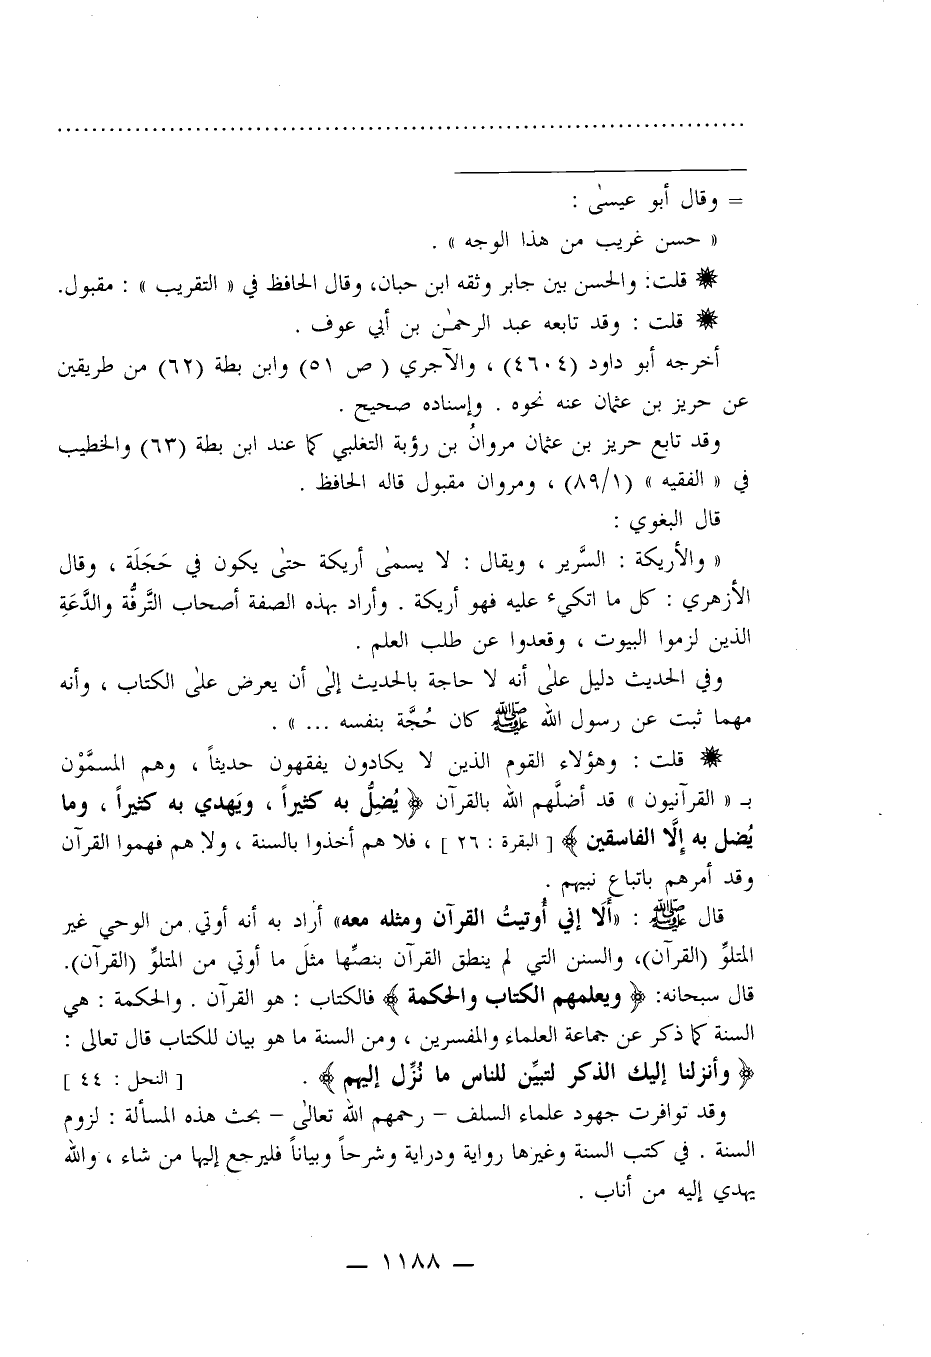 = وقال أبو عيسىٰ :
« حسن غريب من هذا الوجه » .
✹ قلت: والحسن بين جابر وثقه ابن حبان، وقال الحافظ في « التقريب » : مقبول.
✹ قلت : وقد تابعه عبد الرحمٰن بن أبي عوف .
أخرجه أبو داود (٤٦٠٤) ، والآجري ( ص ٥١) وابن بطة (٦٢) من طريقين
عن حريز بن عثمان عنه نحوه . وإسناده صحيح .
وقد تابع حريز بن عثمان مروانُ بن رؤبة التغلبي كما عند ابن بطة (٦٣) والخطيب
في « الفقيه » (٨٩/١) ، ومروان مقبول قاله الحافظ .
قال البغوي :
« والأريكة : السَّرير ، ويقال : لا يسمىٰ أريكة حتىٰ يكون في حَجَلَة ، وقال
الأزهري : كل ما اتكيء عليه فهو أريكة . وأراد بهذه الصفة أصحاب التَّرفُّة والدَّعَةِ
الذين لزموا البيوت ، وقعدوا عن طلب العلم .
وفي الحديث دليل علىٰ أنه لا حاجة بالحديث إلىٰ أن يعرض علىٰ الكتاب ، وأنه
مهما ثبت عن رسول الله ﷺ كان حُجَّة بنفسه ... » .
✹ قلت : وهؤلاء القوم الذين لا يكادون يفقهون حديثاً ، وهم المسمَّوْن
بـ « القرآنيون » قد أضلَّهم الله بالقرآن ﴿ يُضِلُّ به كثيراً ، ويَهدي به كثيراً ، وما
يُضل به إِلَّا الفاسقين ﴾ [ البقرة : ٢٦ ] ، فلا هم أخذوا بالسنة ، ولا هم فهموا القرآن
وقد أمرهم باتباع نبيهم .
قال ﷺ : «أَلَا إني أُوتيتُ القرآن ومثله معه» أراد به أنه أوتي من الوحي غير
المتلوِّ (القرآن)، والسنن التي لم ينطق القرآن بنصِّها مثلَ ما أوتي من المتلوِّ (القرآن).
قال سبحانه: ﴿ ويعلمهم الكتاب والحكمة ﴾ فالكتاب : هو القرآن . والحكمة : هي
السنة كما ذكر عن جماعة العلماء والمفسرين ، ومن السنة ما هو بيان للكتاب قال تعالى :
﴿ وأنزلنا إليك الذكر لتبيِّن للناس ما نُزِّل إليهم ﴾ . [ النحل : ٤٤ ]
وقد توافرت جهود علماء السلف – رحمهم الله تعالىٰ – بحث هذه المسألة : لزوم
السنة . في كتب السنة وغيرها رواية ودراية وشرحاً وبياناً فليرجع إليها من شاء ، والله
يهدي إليه من أناب .
— ١١٨٨ —